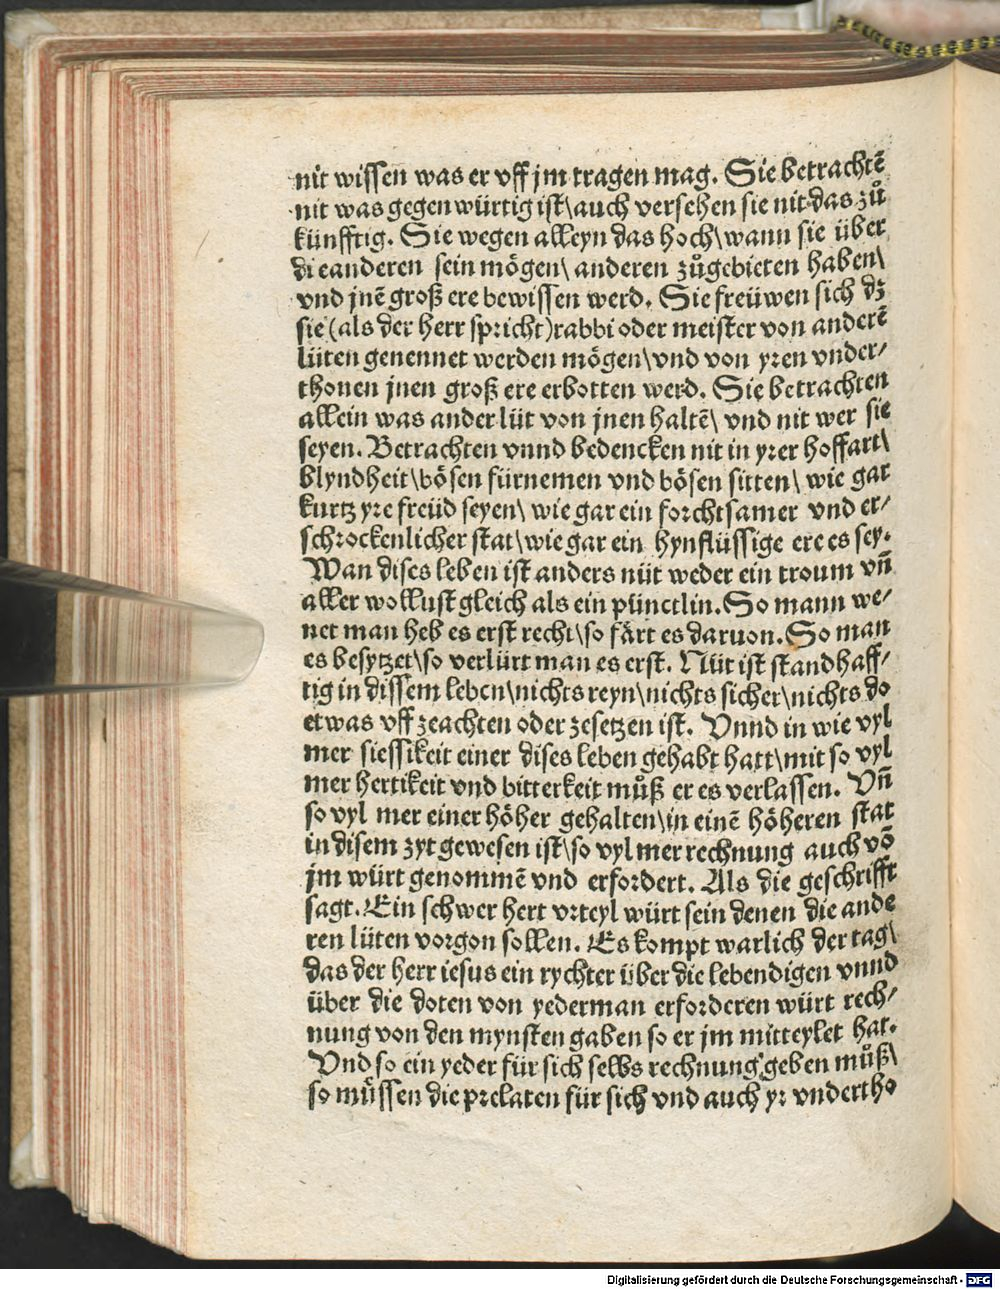 nit wissen was er vff jm tragen mag. Sie betrachtē
nit was gegenwürtig ist\auch versehen sie nit das zů
künfftig. Sie wegen alleyn das hoch\wann sie über
die anderen sein mögen\ anderen zůgebieten haben\
vnd jnē groß ere bewissen werd. Sie freüwen sich dz
sie (als der herr spricht) rabbi oder meister von anderē
lüten genennet werden mögen\vnd von yren vnder/
thonen jnen groß ere erbotten werd. Sie betrachten
allein was ander lüt von jnen haltē\ vnd nit wer sie
seyen. Betrachten vnnd bedencken nit in yrer hoffart\
blyndheit\bösen fürnemen vnd bösen sitten\ wie gar
kurtz yre freüd seyen\ wie gar ein forchtsamer vnd er/
schrockenlicher stat\wie gar ein hynflüssige ere es sey.
Wan dises leben ist anders nüt weder ein troum vn̄
aller wollust gleich als ein pünctlin. So mann we/
net man heb es erst recht\so färt es daruon. So man
es besytzet\so verlürt man es erst. Nüt ist standhaff/
tig in dissem leben\nichts reyn\nichts sicher\nichts do
etwas vff zeachten oder zesetzen ist. Vnnd in wie vyl
mer siessikeit einer dises leben gehabt hatt\mit so vyl
mer hertikeit vnd bitterkeit můß er es verlassen. Vn̄
so vyl mer einer höher gehalten\in einē höheren stat
in disem zyt gewesen ist\so vyl mer rechnung auch vō
jm würt genommē vnd erfordert. Als die geschrifft
sagt. Ein schwer hert vrteyl würt sein denen die ande
ren lüten vorgon sollen. Es kompt warlich der tag\
das der herr iesus ein rychter über die lebendigen vnnd
über die doten von yederman erforderen würt rech/
nung von den mynsten gaben so er jm mitteylet hat.
Vnd so ein yeder für sich selbs rechnung geben můß\
so müssen die prelaten für sich vnd auch yr vndertho
Digitalisierung gefördert durch die Deutsche Forschungsgemeinschaft - DFG